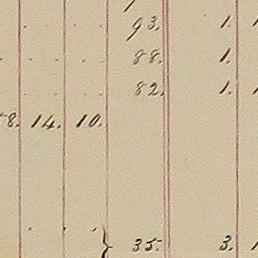 93. 1.
88. 1.
82. 1.
8. 14. 10.
35. 3.